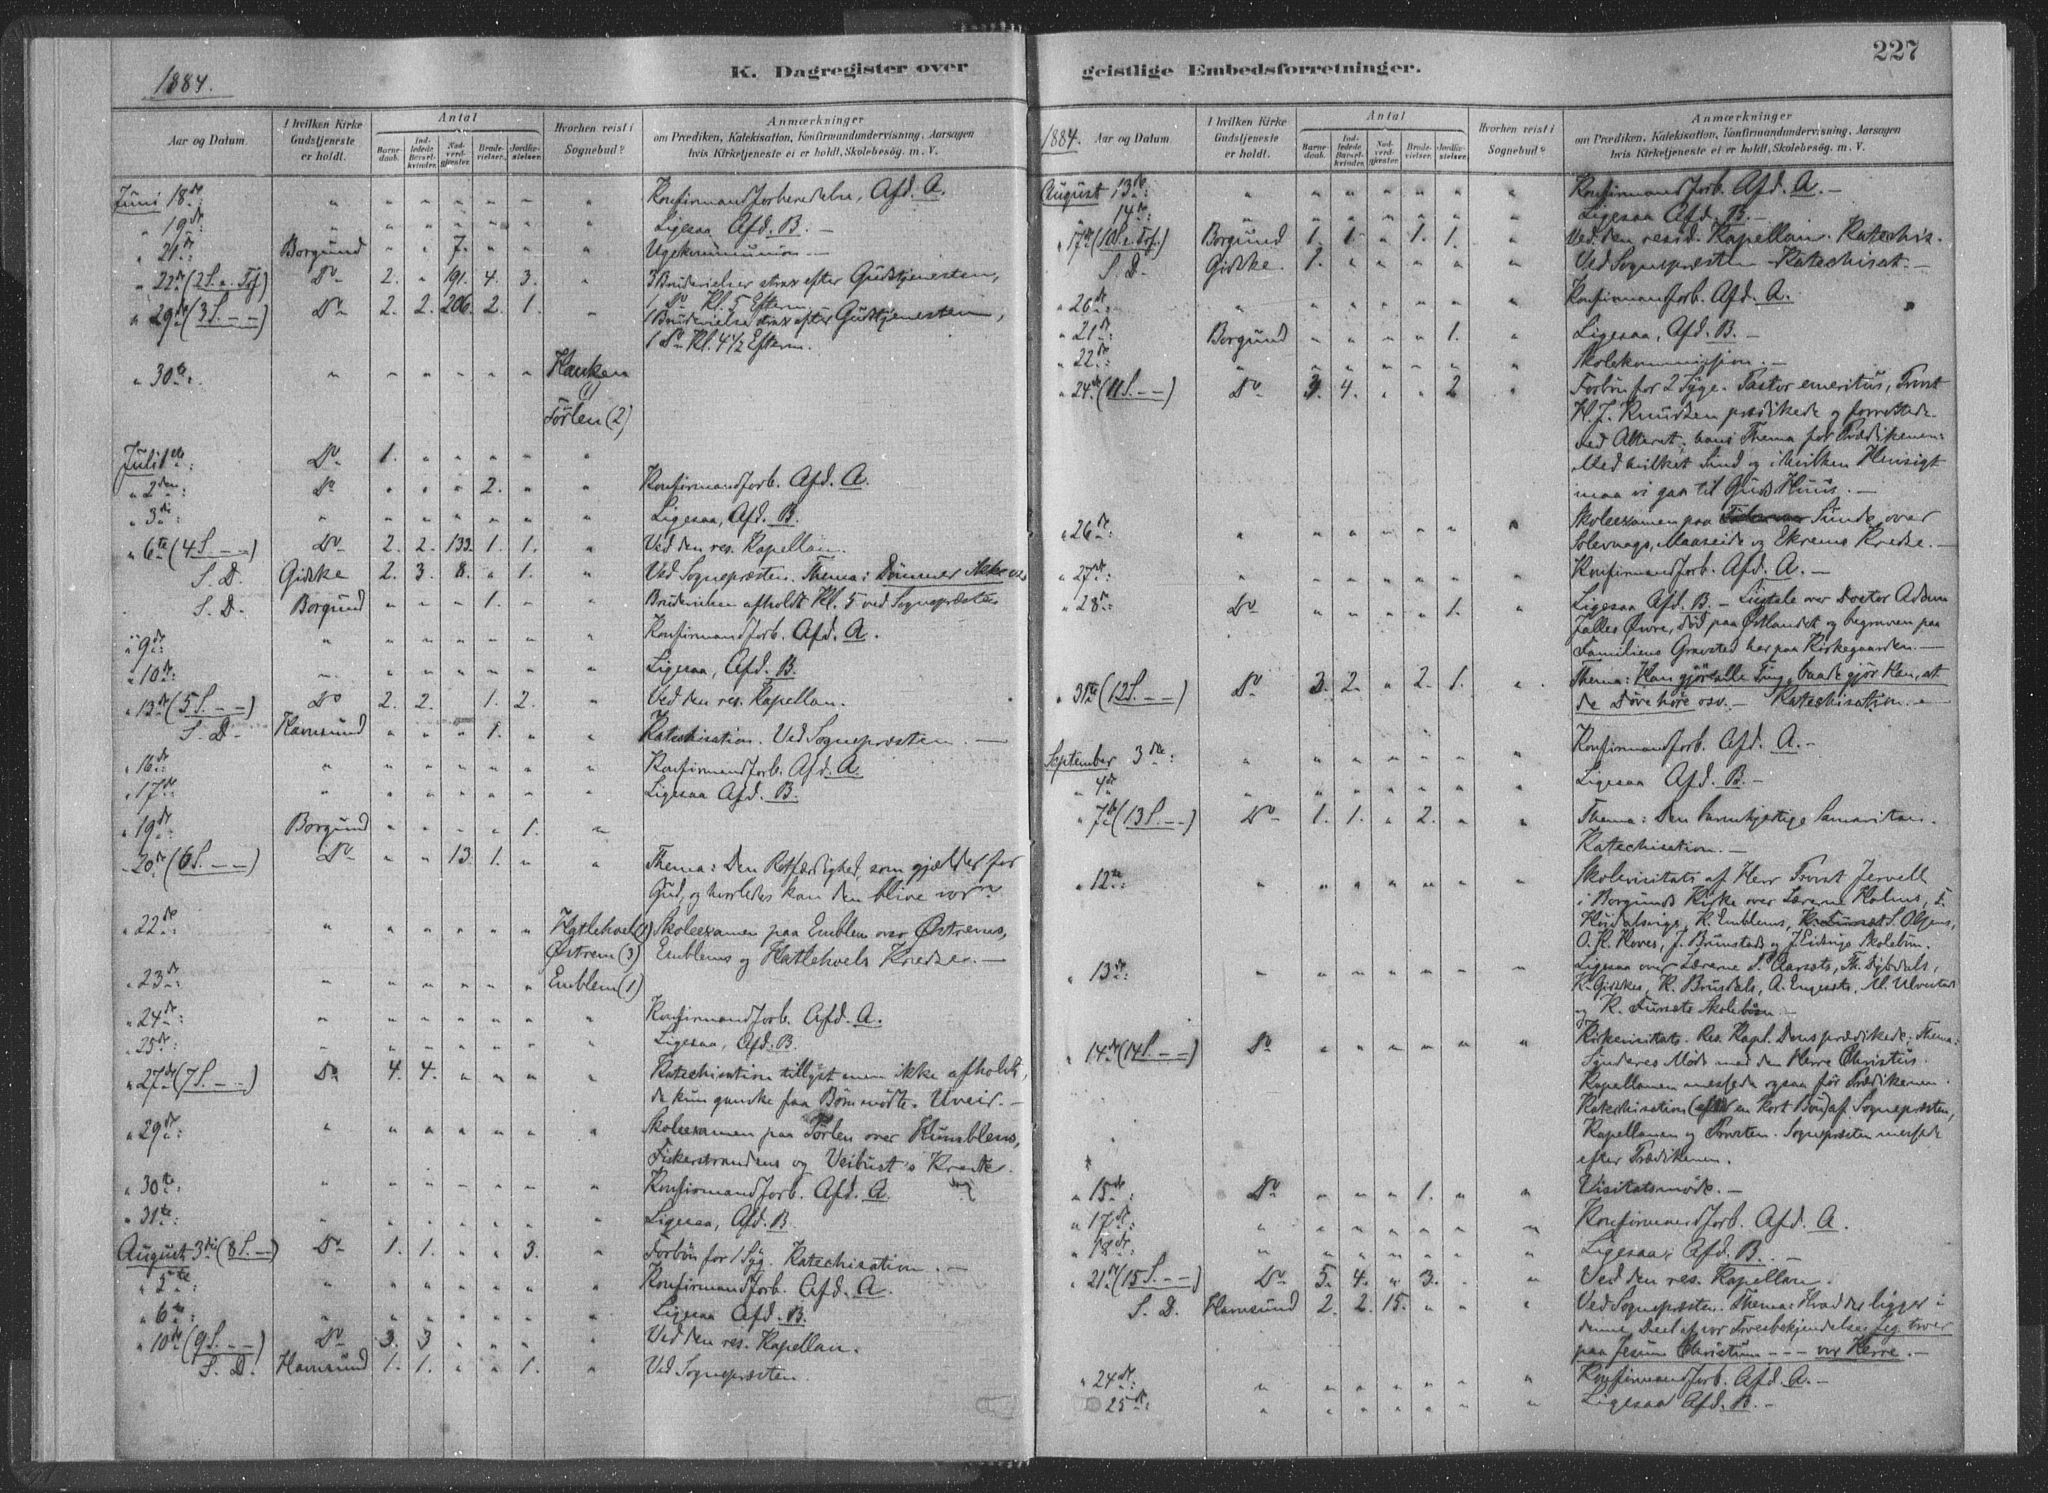 227
K. Dagregister over geistlige Embedsforretninger.
1884.
Aar og Datum. I hvilken Kirke Gudstjeneste er holdt. Antal Barnedaab. Indledede Barselkvinder. Nadverdgjæster. Brudevielser. Jordfæstelser. Hvorhen reist i Sognebud? Anmærkninger
om Prædiken, Katekisation, Konfirmandundervisning, Aarsagen
hvis Kirketjeneste ei er holdt, Skolebesøg. m. V.
Juni 18de " " " " " " " Konfirmandforberedelse, Afd. A.
" 19de: " " " " " " " Ligesaa Afd. B. —
" 21de: Borgund " " 7. " " " Ugekommunion —
" 22de (2 S. e. Trf) Do 2. " 191. 4. 3. " 3 Brudevielser strax efter Gudstjenesten,
1 Do Kl. 5 Efterm.
" 29de (3 S. - -) Do 2. 2. 206. 2. 1. " 1 Brudevielse strax efter Gudstjenesten,
1 Do Kl. 4 1/2 Efterm.
" 30te: " " " " " " Hanken (1)
Tørlen (2)
Juli 1ste: Do 1. " " " " "
" 2den: Do " " " 2. " " Konfirmandforb. Afd. A.
" 3de: " " " " " " " Ligesaa, Afd. B.
" 6te (4 S. - -) Do 2. 2. 133. 1. 1. " Ved den res. Kapellan.
S. D. Giske 2. 3. 8. " 1. " Ved Sognepræsten. Thema: Dømmer Ikke osv
S. D. Borgund " " " 1. " " Brudevielsen afholdt Kl. 5 ved Sognepræsten
" 9de: " " " " " " " Konfirmandforb. Afd. A.
" 10de: " " " " " " " Ligesaa, Afd. B.
" 13de (5 S. - -) Do 2. 2. 1. 2. " Ved den res. Kapellan.
S. D. Hamsund " " " 1. " " Katechisation. Ved Sognepræsten. —
" 16de: " " " " " " " Konfirmandforb. Afd. A.
" 17de: " " " " " " " Ligesaa Afd. B.
" 19de: Borgund " " " " 1. "
" 20de (6 S. - -) Do " " 13. 1. " " Thema: Den Retfærdighed, som gjælder for
Gud, og hvorledes kan den blive vor?
" 22de " " " " " " Hatlehol (1) Skoleexamen paa Emblem over Østrems,
Østrem (3) Emblems og Hatlehols Kredse. —
" 23de: " " " " " " Emblem (1)
" 24de: " " " " " " " Konfirmandforb. Afd. A.
" 25de: " " " " " " " Ligesaa, Afd. B.
" 27de (7 S. - -) Do 4. 4. " " " " Katechisation tillyst men ikke afholdt,
da kun ganske faa Børn mødte. Uveir. —
" 29de: " " " " " " " Skoleexamen paa Tørlen over Humblens,
Fiskerstrandens og Veibust's Kredse.
" 30te: " " " " " " " Konfirmandforb. Afd. A.
" 31te: " " " " " " " Ligesaa, Afd. B.
August 3die (8 S. - -) Do 1. 1. " " 3. " Forbøn for 1 Syg. Katechisation. —
" 5te " " " " " " " Konfirmandforb. Afd. A.
" 6te: " " " " " " " Ligesaa Afd. B.
" 10de (9 S. - -) Do 3. 3 " " " " Ved den res. Kapellan.
S. D. Hamsund 1. 1. " " 1. " Ved Sognepræsten.
1884. Aar og Datum. I hvilken Kirke Gudstjeneste er holdt. Antal Barnedaab. Indledede Barselkvinder. Nadverdgjæster. Brudevielser. Jordfæstelser. Hvorhen reist i Sognebud? Anmærkninger
om Prædiken, Katekisation, Konfirmandundervisning, Aarsagen
hvis Kirketjeneste ei er holdt, Skolebesøg. m. V.
August 13de: " " " " " " " Konfirmandforb. Afd. A. —
14de: " " " " " " " Ligesaa Afd. B. —
" 17de (10 S. e. Trf.) Borgund 1. 1. " 1. 1. " Ved den resid. Kapellan. Katechis.
S. D. Giske 1. " " " " " Ved Sognepræsten. Katechisat. —
" 20de: " " " " " " " Konfirmandforb. Afd. A.
" 21de: Borgund " " " " 1. " Ligesaa, Afd. B. —
" 22de: " " " " " " " Skolekommission. —
" 24de (11 S. - -) Do 3. 4. " " 2 " Forbøn for 2 Syge. Pastor emeritus, Provst
H. J. Knudsen prædikede og forrettede
ved Alteret; hans Thema for Prædikenen:
Med hvilket Sind og i hvilken Hensigt
maa vi gaa til Guds Huus. —
" 26de: " " " " " " " Skoleexamen paa Sunde over
Solevaags, Maaseide og Ekrems Kredse. —
" 27de: " " " " " " " Konfirmandforb. Afd. A. —
" 28de: Do " " " " 1. " Ligesaa Afd. B. — Ligtale over Doctor Adam
Jalles Øvre, død paa Østlandet og begraven paa
Familiens Gravsted her paa Kirkegaarden. —
" 31te (12 S. - -) Do 3. 2. " 2. 1. " Thema: Han gjør alle Ting, baade gjør Han, at
de Døve høre osv. — Katechisation. —
September 3die: " " " " " " " Konfirmandforb. Afd. A. —
" 4de " " " " " " " Ligesaa Afd. B. —
" 7de (13 S. - -) Do 1. 1. " 2. " " Thema: Den barmhjertige Samaritan.
Katechisation. —
" 12te: " " " " " " " Skolevisitats af Herr Provst Jervell
i Borgunds Kirke over Lærerne Holms,
K. Emblems, S. Olsens,
O. K. Roves, J. Brunstads og J. Eidsvigs Skolebørn.
" 13de: " " " " " " " Ligesaa over Lærerne P. Aarsets, Th. Dybdals,
K. Giskes, K. Brusdals, A. Engesets, M. Ulvestads
og K. Fursets Skolebørn. —
" 14de (14 S. - -) Do " " " " " " Kirkevisitats. Res. Kapl. Dons prædikede; Thema:
Synderes Møde med den Herre Christus.
Kapellanen messede ogsaa før Prædikenen.
Katechisation (efter en kort Bøn) af Sognepræsten,
Kapellanen og Provsten. Sognepræsten messede
efter Prædikenen.
" 15de: Do " " " 1. " " Visitatsmøde. —
" 17de: " " " " " " " Konfirmandforb. Afd. A.
" 18de: " " " " " " " Ligesaa, Afd. B. —
" 21de (15 S. - -) Do 5. 4. " 3. " " Ved den res. Kapellan.
S. D. Hamsund 2. 2. 15. " " " Ved Sognepræsten. Thema: Hvad der ligger i
denne Deel af vor Troesbekjendelse: Jeg troer
paa Jesum Christum - - - vor Herre. —
" 24de: " " " " " " " Konfirmandforb. Afd. A. —
25de: " " " " " " " Ligesaa Afd. B. —